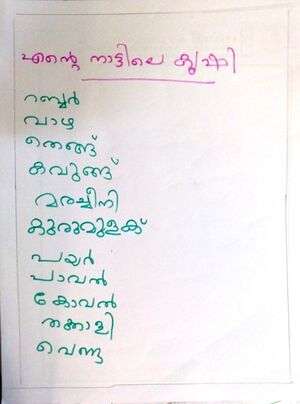 എന്റെ നാട്ടിലെ കൃഷി
റബ്ബർ
വാഴ
തെങ്ങ്
കവുങ്ങ്
മരച്ചീനി
കുരുമുളക്
പയർ
പാവൽ
കോവൽ
തക്കാളി
വെണ്ട